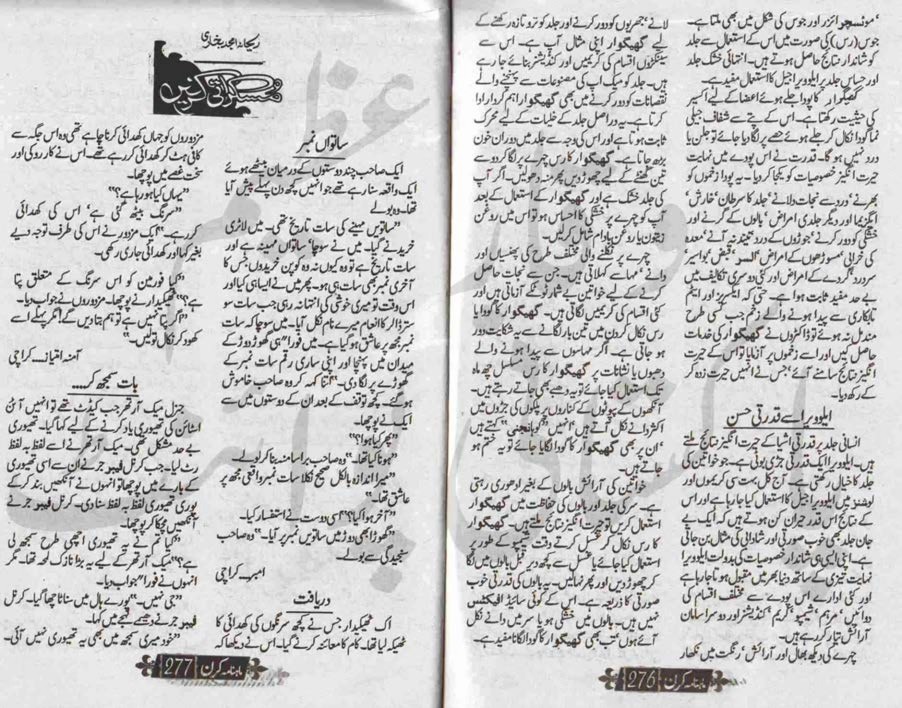 ’مونسچرائزر اور جوس کی شکل میں بھی ملتا ہے۔
جوس (رس) کی صورت میں اس کے استعمال سے جلد
کو شاندار نتائج حاصل ہوتے ہیں۔ انتہائی خشک جلد
اور حساس جلد پر ایلوویرا جیل کا استعمال مفید ہے۔
گھیکوار کا پودا جلے ہوئے اعضا کے لیے اکسیر
کی حیثیت رکھتا ہے۔ اس کے پتے سے شفاف جیلی
نما گودا نکال کر جلے ہوئے حصے پر لگا دیا جائے تو جلن یا
درد نہیں ہوگا۔ قدرت نے اس پودے میں نہایت
حیرت انگیز خصوصیات کو یکجا کر دیا۔ یہ پودا زخموں کو
بھرنے‘ درد سے نجات دلانے‘ جلد کا سرطان‘ خارش‘
ایگزیما اور دیگر جلدی امراض‘ بالوں کے گرنے اور
خشکی کو دور کرنے‘ جوڑوں کے درد‘ نیند نہ آنے‘ معدہ
کی خرابی‘ مسوڑھوں کے امراض‘ السر‘ قبض‘ بواسیر‘
سردرد‘ گردے کے امراض اور کئی دوسری تکالیف میں
بے حد مفید ثابت ہوا ہے۔ حتی کہ ایکسریز اور ایٹم
تابکاری سے پیدا ہونے والے زخم جب کسی طرح
مندمل نہ ہوئے تو ڈاکٹروں نے گھیکوار کی خدمات
حاصل کیں اور اسے زخموں پر آزمایا تو اس کے حیرت
انگیز نتائج سامنے آئے‘ جس نے انہیں حیرت زدہ کر
کے رکھ دیا۔
ایلوویرا سے قدرتی حسن
انسانی جلد پر قدرتی اشیا کے حیرت انگیز نتائج ملتے
ہیں۔ ایلوویرا ایک قدرتی جڑی بوٹی ہے۔ جو خواتین کی
جلد کا خیال رکھتی ہے۔ آج کل بہت سی کریموں اور
لوشنز میں ایلوویرا جیل کا استعمال کیا جا رہا ہے اور اس
کے نتائج اس قدر حیران کن ہوتے ہیں کہ ایک بے
جان جلد بھی خوب صورتی اور شادابی کی مثال بن جاتی
ہے۔ اپنی ایسی ہی شاندار خصوصیات کی بدولت ایلوویرا
نہایت تیزی کے ساتھ دنیا بھر میں مقبول ہوتا جا رہا ہے
اور کئی ادارے اس پودے سے مختلف اقسام کی
دوائیں‘ مرہم‘ شیمپو‘ کریم‘ کنڈیشنر اور دوسرا سامان
آرائش تیار کر رہے ہیں۔
چہرے کی دیکھ بھال اور آرائش‘ رنگت میں نکھار
لانے‘ جھریوں کو دور کرنے اور جلد کو تروتازہ رکھنے کے
لیے گھیکوار اپنی مثال آپ ہے۔ اس سے
سینکڑوں اقسام کی کریمیں اور کنڈیشنر بنائے جا رہے
ہیں۔ جلد کو میک اپ کی مصنوعات سے پہنچنے والے
نقصانات کو دور کرنے میں بھی گھیکوار اہم کردار ادا
کرتا ہے۔ یہ دراصل جلد کے خلیات کے لیے محرک
ثابت ہوتا ہے اور اس کی وجہ سے جلد میں دوران خون
بڑھ جاتا ہے۔ گھیکوار کا رس چہرے پر لگا کر دو سے
تین گھنٹے کے لیے چھوڑ دیں پھر منہ دھو لیں۔ اگر آپ
کی جلد خشک ہے اور گھیکوار کے استعمال کے بعد
آپ کو چہرے پر خشکی کا احساس ہو تو اس میں روغن
زیتون یا روغن بادام شامل کر لیں۔
چہرے پر نکلنے والی مختلف طرح کی پھنسیاں اور
دانے‘ مہاسے کہلاتی ہیں۔ جن سے نجات حاصل
کرنے کے لیے خواتین بے شمار ٹوٹکے آزماتی ہیں اور
کئی اقسام کی کریمیں لگاتی ہیں۔ گھیکوار کا گودا یا
رس نکال کر دن میں تین بار لگانے سے یہ شکایت دور
ہو جاتی ہے۔ اگر مہاسوں سے پیدا ہونے والے
دھبوں یا نشانات پر گھیکوار کا رس مسلسل چھ ماہ
تک استعمال کیا جائے تو یہ دھبے بھی جاتے رہتے ہیں۔
آنکھوں کے پپوٹوں کے کناروں پر پلکوں کی جڑوں میں
اکثر دانے نکل آتے ہیں۔ انہیں ”گوہانجنی“ کہتے ہیں
ان پر بھی گھیکوار کا گودا لگایا جائے تو یہ ختم ہو
جاتے ہیں۔
خواتین کی آرائش بالوں کے بغیر ادھوری رہتی
ہے۔ سر کی جلد اور بالوں کی حفاظت میں گھیکوار
استعمال کریں تو حیرت انگیز نتائج ملتے ہیں۔ گھیکوار
کا رس نکال کر شیمپو کرتے وقت شیمپو کے طور پر
استعمال کیا جائے یا غسل سے کچھ دیر قبل بالوں میں لگا
کر چھوڑ دیں اور پھر نہا لیں۔ یہ بالوں کی قدرتی خوب
صورتی کا ذریعہ ہے۔ اس کے کوئی سائیڈ افیکٹس
نہیں ہیں۔ بالوں میں خشکی ہو یا سر میں دانے نکل
آئے ہوں‘ تب بھی گھیکوار کا گودا لگانا مفید ہے۔
ماہنامہ کرن 276
ریحانہ امجد بخاری
مسکراتی کرنیں
ساتواں نمبر
ایک صاحب چند دوستوں کے درمیان بیٹھے ہوئے
ایک واقعہ سنا رہے تھے جو انہیں کچھ دن پہلے پیش آیا
تھا۔ وہ بولے
”ساتویں مہینے کی سات تاریخ تھی۔ میں لاٹری
خریدنے گیا۔ میں نے سوچا‘ ساتواں مہینہ ہے اور
سات تاریخ ہے تو وہ کیوں نہ وہ کوپن خریدوں‘ جس کا
آخری نمبر بھی سات ہی ہو۔ پھر میں نے ایسا ہی کیا اور
اس وقت تو میری خوشی کی انتہا نہ رہی جب سات سو
ستر ڈالر کا انعام میرے نام نکل آیا۔ میں سوچا کہ سات
نمبر مجھ پر عاشق ہو گیا ہے۔ میں فوراً ہی گھوڑ دوڑ کے
میدان میں پہنچا اور اپنی ساری رقم سات نمبر کے
گھوڑے پر لگا دی۔“ اتنا کہہ کر وہ صاحب خاموش
ہو گئے۔ کچھ توقف کے بعد ان کے دوستوں میں سے
ایک نے پوچھا۔
”پھر کیا ہوا؟“
”ہونا کیا تھا۔“ وہ صاحب برا سا منہ بنا کر بولے۔
”میرا اندازہ بالکل صحیح نکلا سات نمبر واقعی مجھ پر
عاشق تھا۔“
”آخر ہوا کیا؟“ اسی دوست نے استفسار کیا۔
”گھوڑا بھی دوڑ میں ساتویں نمبر پر آیا۔“ وہ صاحب
سنجیدگی سے بولے۔
امبر۔ کراچی
دریافت
اک ٹھیکیدار جس نے کچھ سرنگوں کی کھدائی کا
ٹھیکہ لیا تھا۔ کام کا معائنہ کرنے گیا۔ اس نے دیکھا کہ
مزدوروں کو جہاں کھدائی کرنا چاہیے تھی وہ اس جگہ سے
کافی ہٹ کر کھدائی کر رہے تھے۔ اس نے کار روکی اور
سخت غصے میں پوچھا۔
”یہاں کیا ہو رہا ہے؟“
”سرنگ بیٹھ گئی ہے‘ اس کی کھدائی
کر رہے ہیں۔“ ایک مزدور نے اس کی طرف توجہ دیے
بغیر کہا اور کھدائی جاری رکھی۔
”کیا فورمین کو اس سرنگ کے متعلق پتا
ہے؟“ ٹھیکیدار نے پوچھا۔ مزدوروں نے جواب دیا۔
”اگر پتا نہیں ہے تو ہم بتا دیں گے‘ مگر پہلے اسے
کھود کر نکال تو لیں۔“
آمنہ امتیاز۔ کراچی
بات سمجھ کر....
جنرل میک آرتھر جب کیڈٹ تھے تو انہیں آئن
اسٹائن کی تھیوری یاد کرنے کے لیے کہا گیا۔ تھیوری
بے حد مشکل تھی۔ میک آرتھر نے اسے لفظ بہ لفظ
رٹ لیا۔ جب کرنل فیبو جر نے ان سے اسی تھیوری
کے بارے میں پوچھا تو انہوں نے آنکھیں بند کر کے
پوری تھیوری لفظ بہ لفظ سنا دی۔ کرنل فیبو جر نے
آنکھیں مچکا کر پوچھا۔
”کیا تم نے یہ تھیوری اچھی طرح سمجھ لی
ہے؟“ میک آرتھر کے لیے یہ بڑا نازک لمحہ تھا۔ مگر
انہوں نے فوراً جواب دیا۔
”جی نہیں۔“ پورے ہال میں سناٹا چھا گیا۔ کرنل
فیبو جر نے دھیمے لہجے میں کہا۔
”خود میری سمجھ میں بھی یہ تھیوری نہیں آئی۔“
ماہنامہ کرن 277